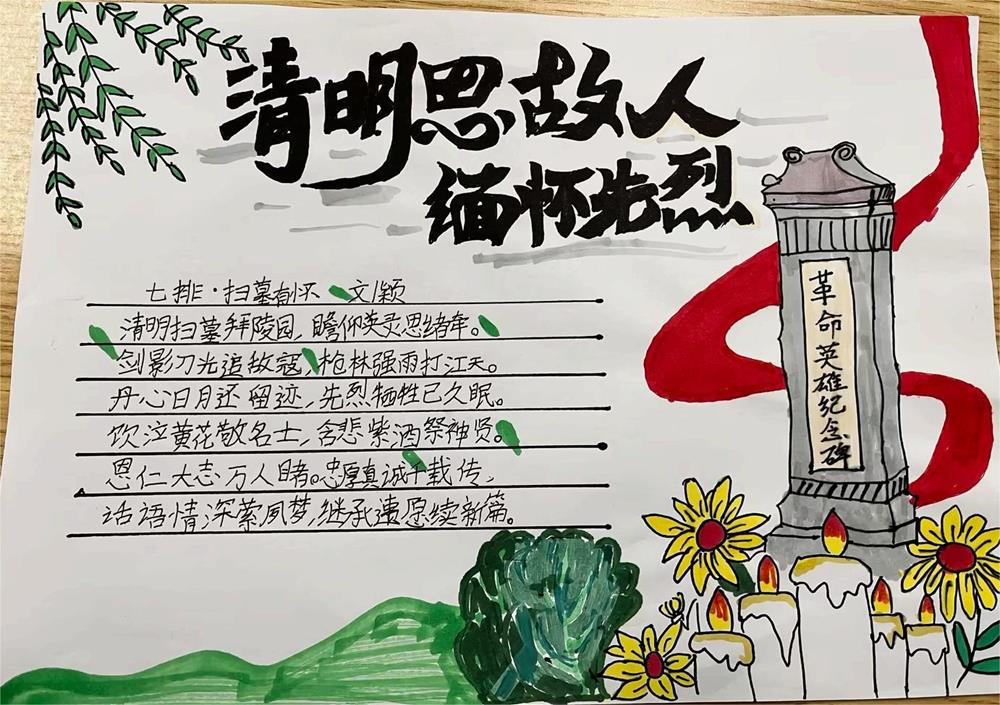 清明思故人
缅怀先烈
七排·扫墓有怀 文/颖
清明扫墓拜陵园,瞻仰英灵思绪牵。
剑影刀光追敌寇,枪林强雨打江天。
丹心日月还留迹,先烈牺牲已久眠。
饮泣黄花敬名士,含悲紫酒祭神贤。
恩仁大志万人睹。忠厚真诚千载传,
话语情深萦夙梦,继承遗愿续新篇。
革命英雄纪念碑